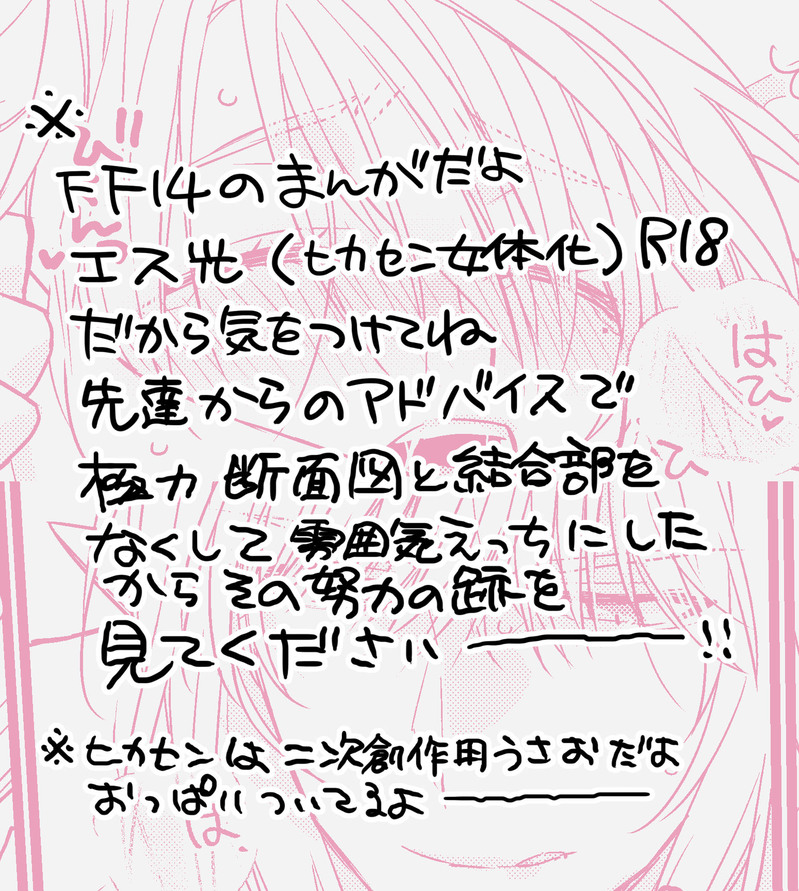 ※
FF14のまんがだよ
エス光（ヒカセン女体化）R18
だから気をつけてね
先達からのアドバイスで
極力断面図と結合部を
なくして雰囲気えっちにした
からその努力の跡を
見てくださいーーー!!
※ヒカセンは二次創作用うさおだよ
おっぱいついてるよーーー
び
んっ♥
はひ♥
ひ
は